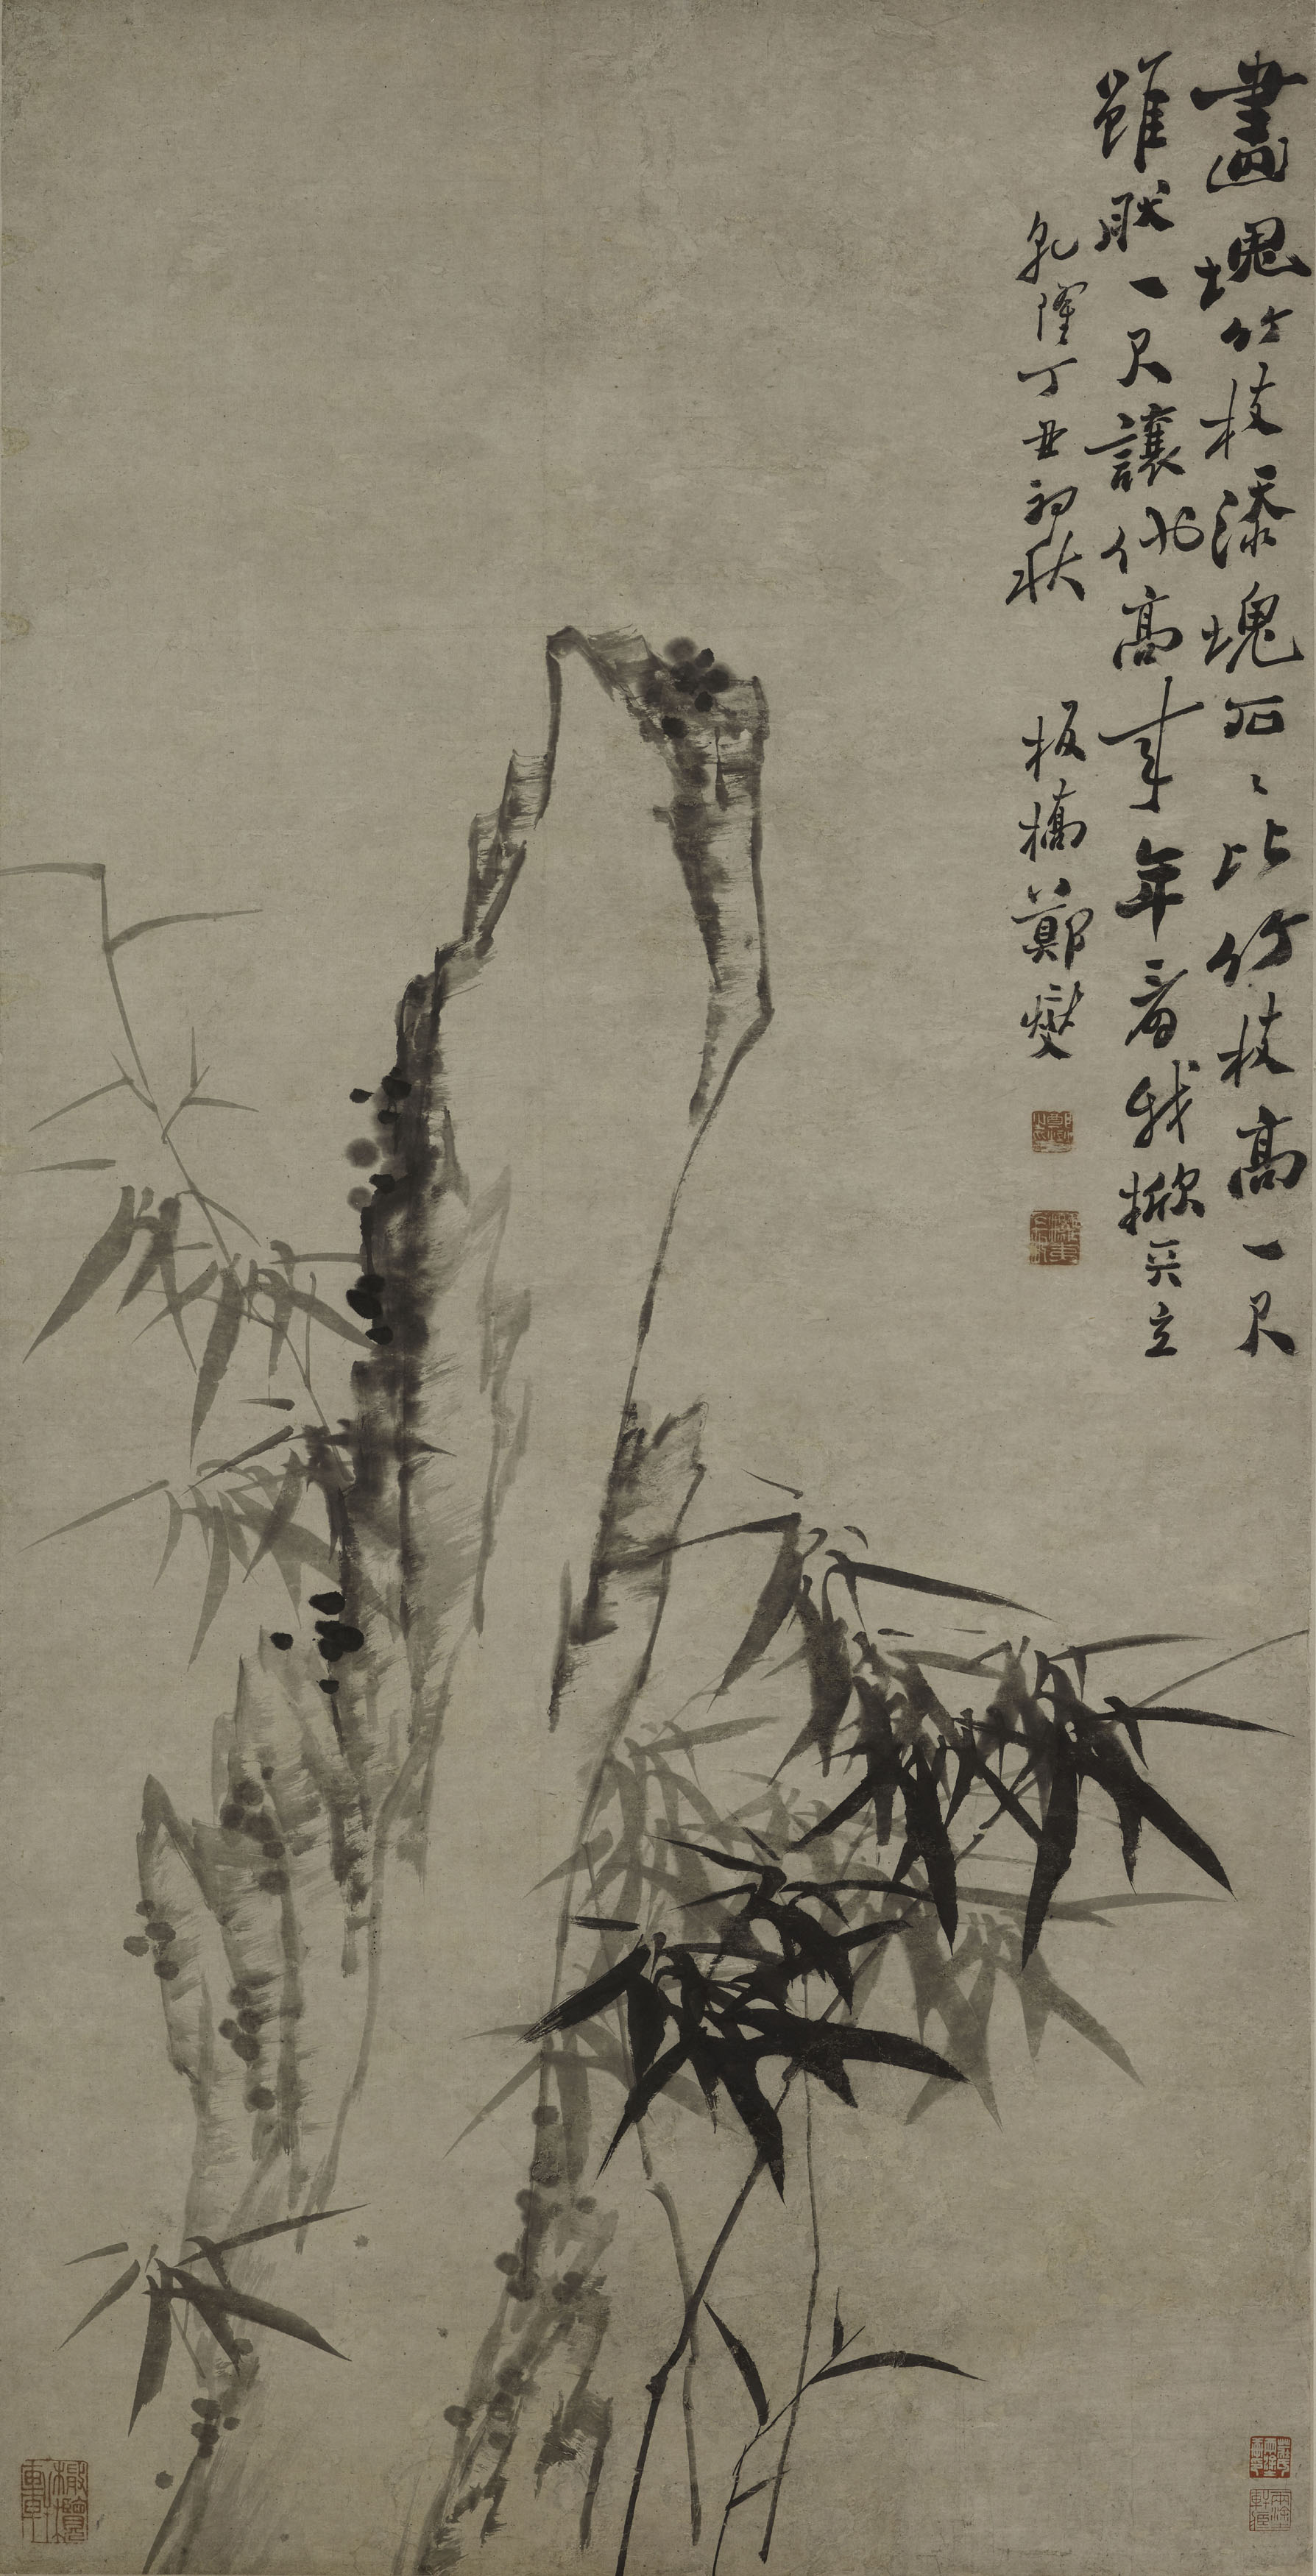 畫塊竹枝添塊石〻比竹枝高一尺
雖然一尺讓他高來年看我掀天立
乾隆丁丑初秋
板橋鄭燮